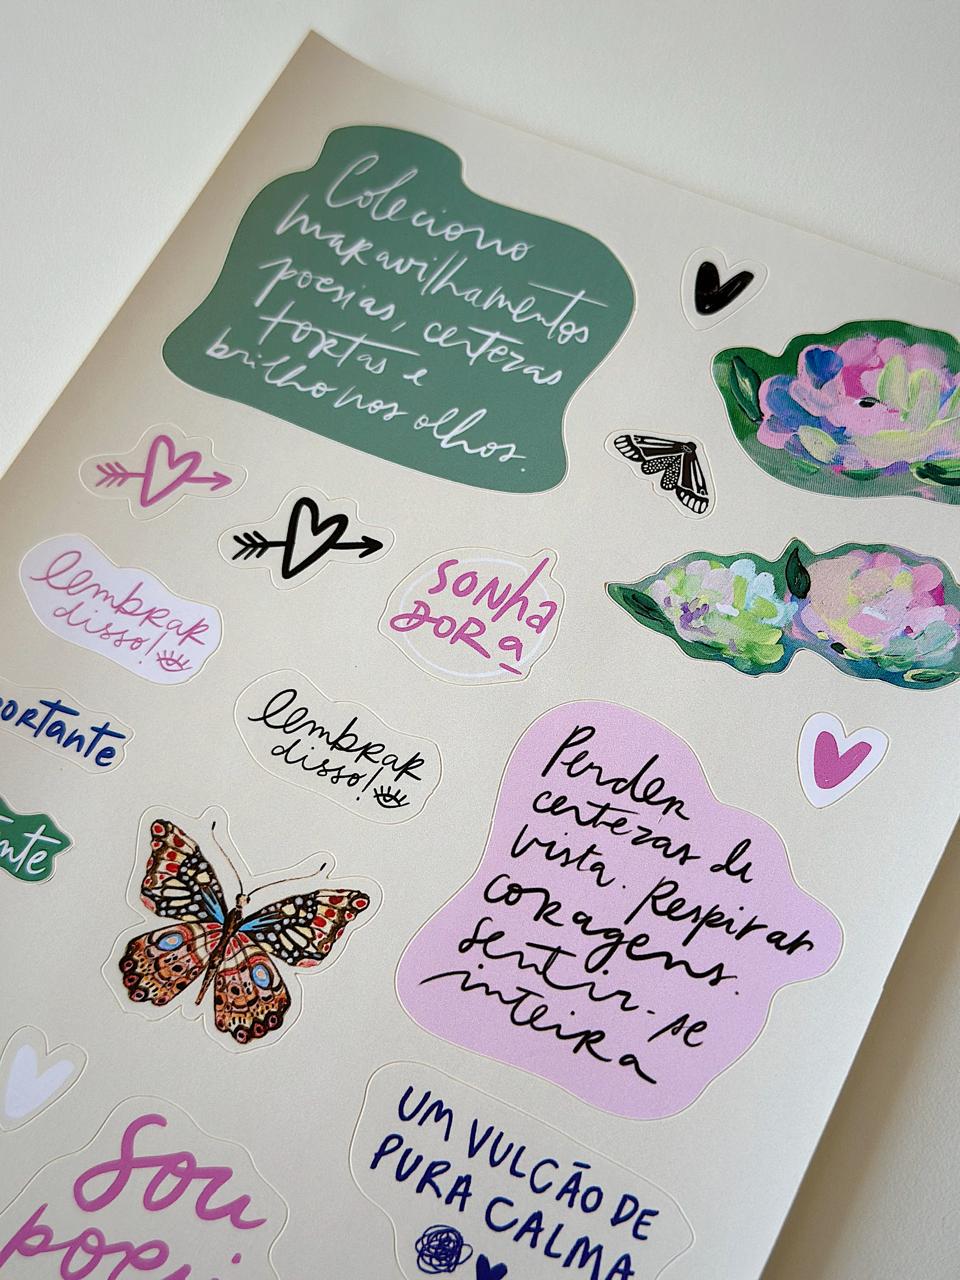 Coleciono
maravilhamentos
poesias, certezas
tortas e
brilho nos olhos.
lembrar
disso!
sonha
dora
lembrar
disso!
Perder
certezas de
vista. Respirar
coragens.
Sentir-se
inteira
Sou
UM VULCÃO DE
PURA CALMA